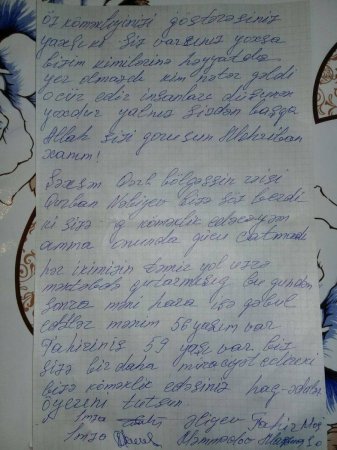 öz köməkliyinizi göstərəsiniz
yaxşı ki siz varsınız yoxsa
bizim kimilərinə həyyatda
yer olmazdı kim nətər gəldi
əcür edir insanları düşünən
yoxdur yalnız sizdən başqa
Allah sizi qorusun Mehriban
xanım!
Qərb bölgəsinin rəisi
Qurban bizə söz verdi
ki sizə köməklik edəcəyəm
amma onunda gücü çatmadı
hər ikimizin təmir yol uzrə
məktəbdə qutarmışıq bu gündən
sonra məni hara işə qəbul
edəllər mənim 56 yaşım var
Tahirinis 59 yaşı var biz
sizə bir daha müraciyət edirikki
bizə köməklik edəsiniz haq-ədalət
öz yerini tutsun
İmza Əliyev Tahir
İmza Məmmədov